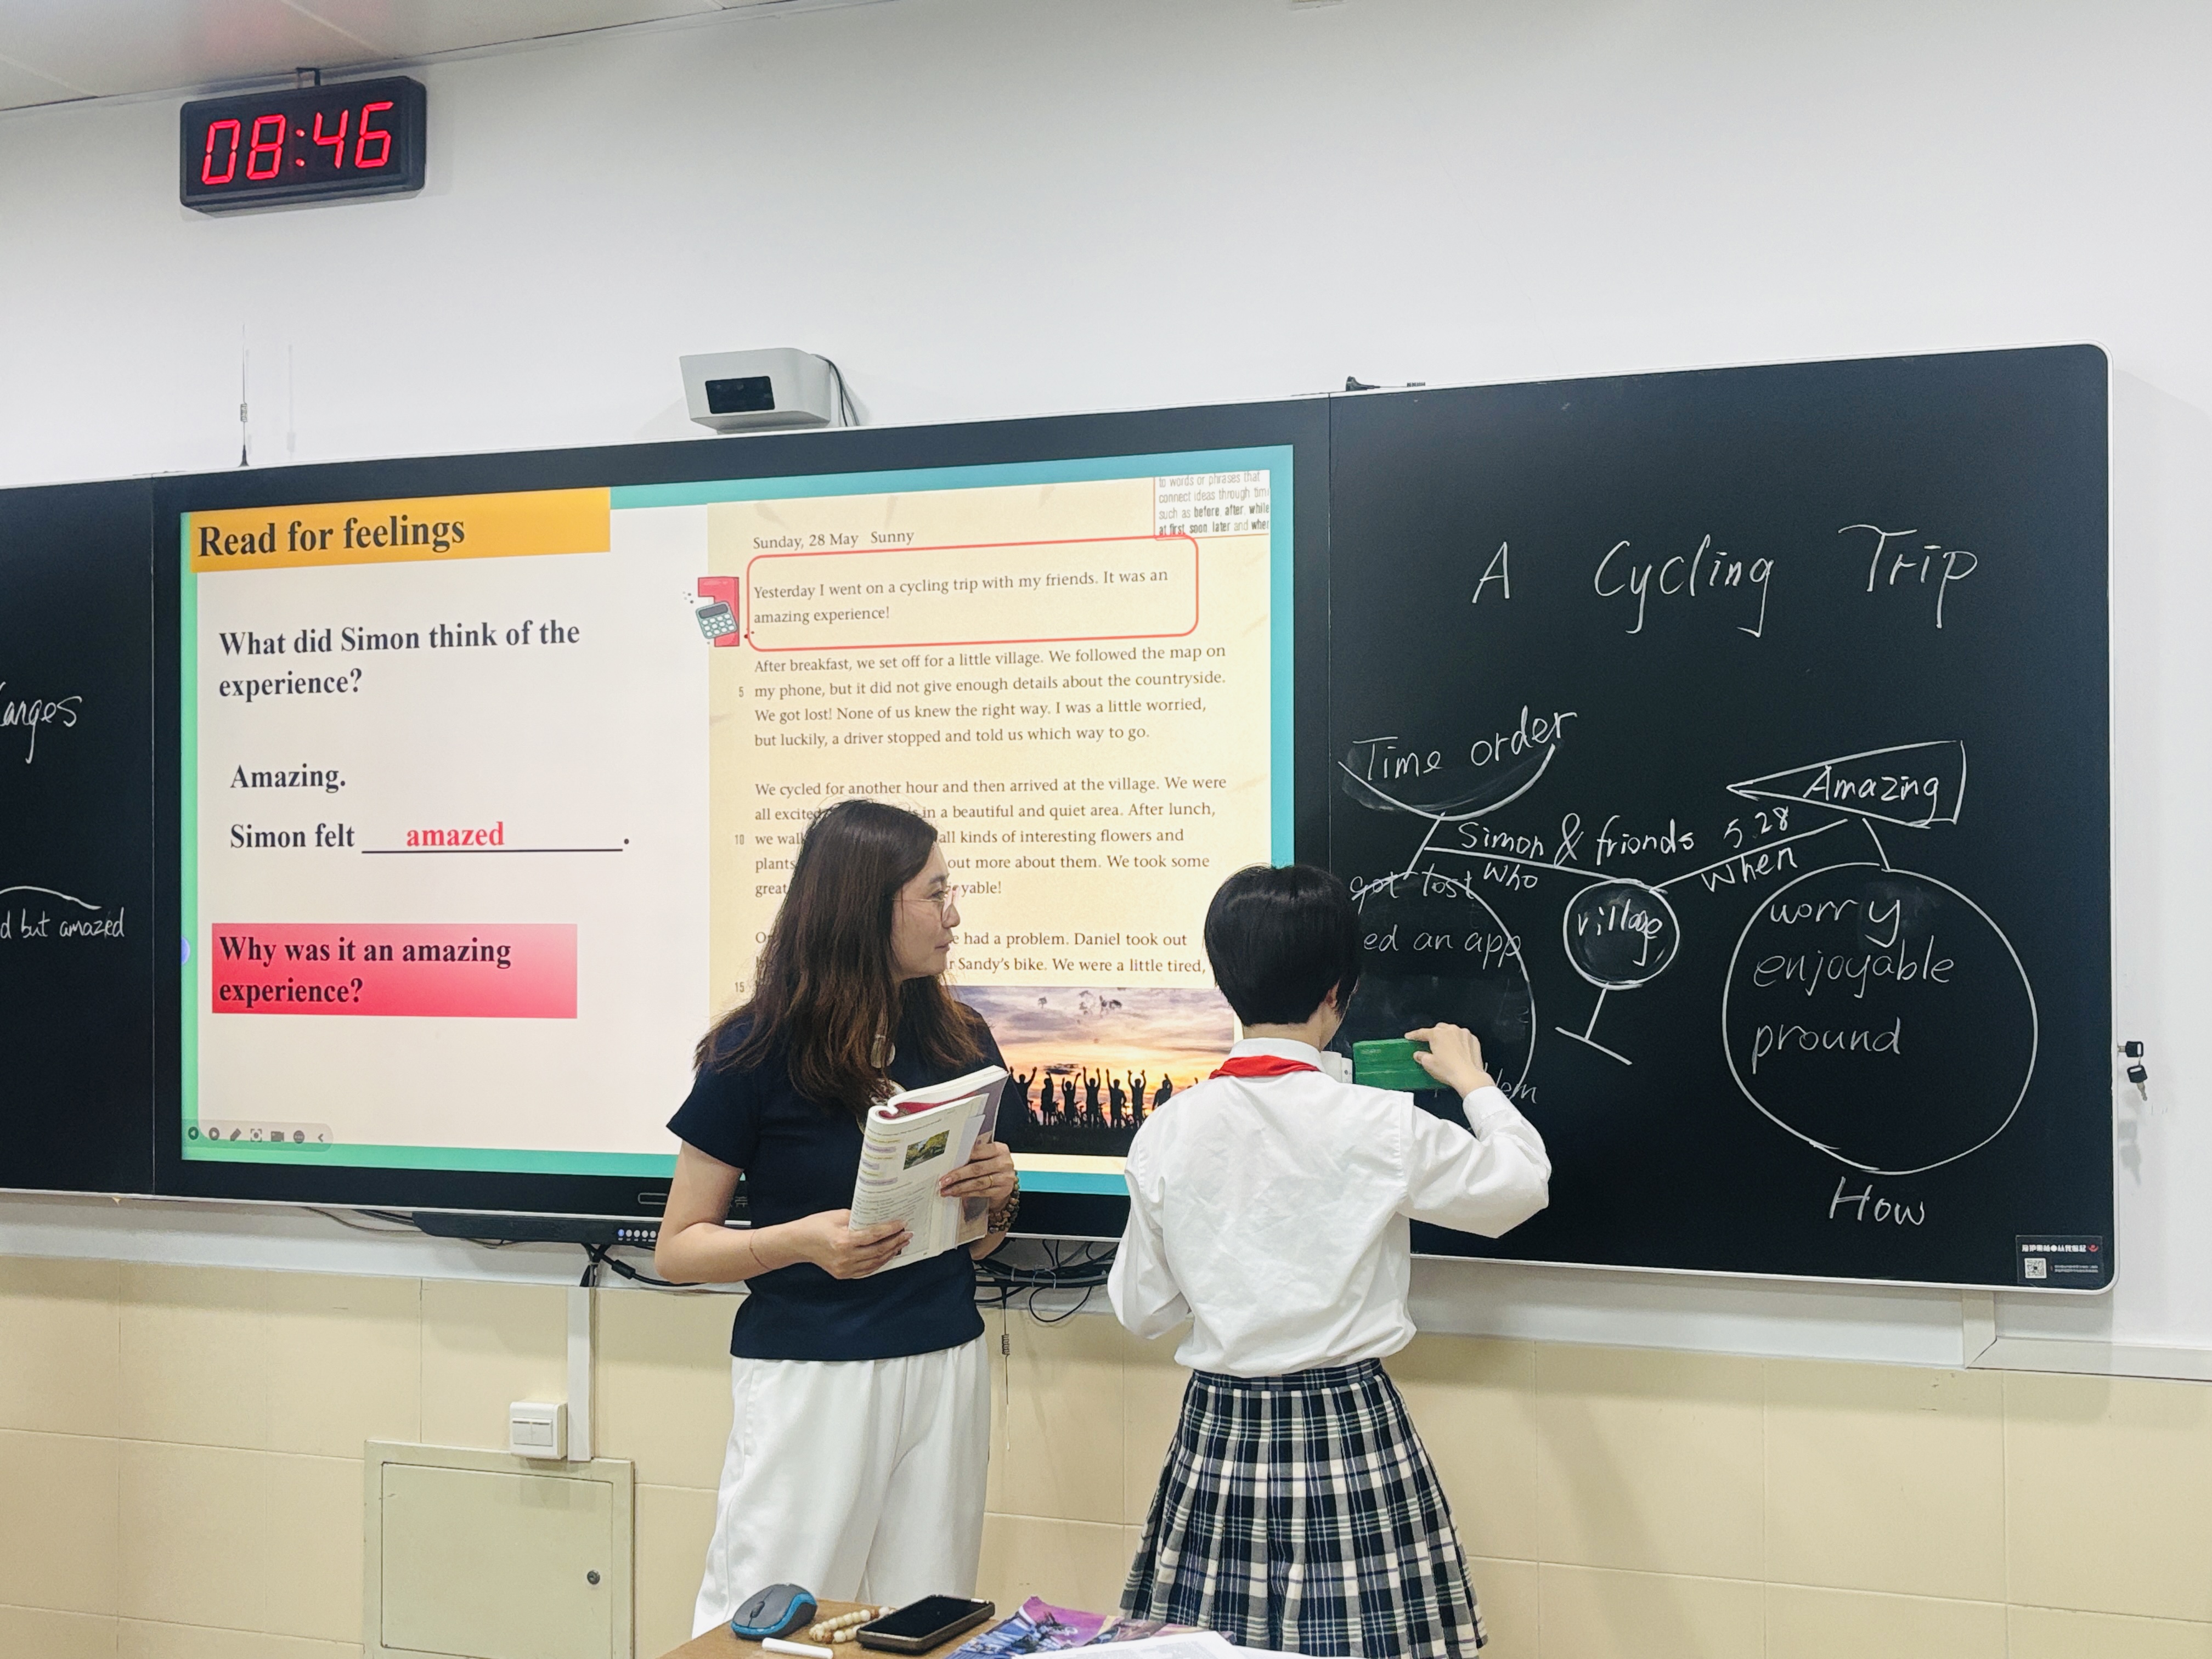 08:46
Read for feelings
What did Simon think of the
experience?
Amazing.
Simon felt amazed .
Why was it an amazing
experience?
to words or phrases that
connect ideas through tim
such as before, after, while
at first, soon, later and when
Sunday, 28 May Sunny
Yesterday I went on a cycling trip with my friends. It was an
amazing experience!
After breakfast, we set off for a little village. We followed the map on
5 my phone, but it did not give enough details about the countryside.
We got lost! None of us knew the right way. I was a little worried,
but luckily, a driver stopped and told us which way to go.
We cycled for another hour and then arrived at the village. We were
all excited in a beautiful and quiet area. After lunch,
10 we wal all kinds of interesting flowers and
plants out more about them. We took some
great yable!
had a problem. Daniel took out
Sandy's bike. We were a little tired,
15
anges
d but amazed
A Cycling Trip
Time order
Amazing
Simon & frionds 5.28
who
when
got lost
ed an app
village
lem
worry
enjoyable
pround
How